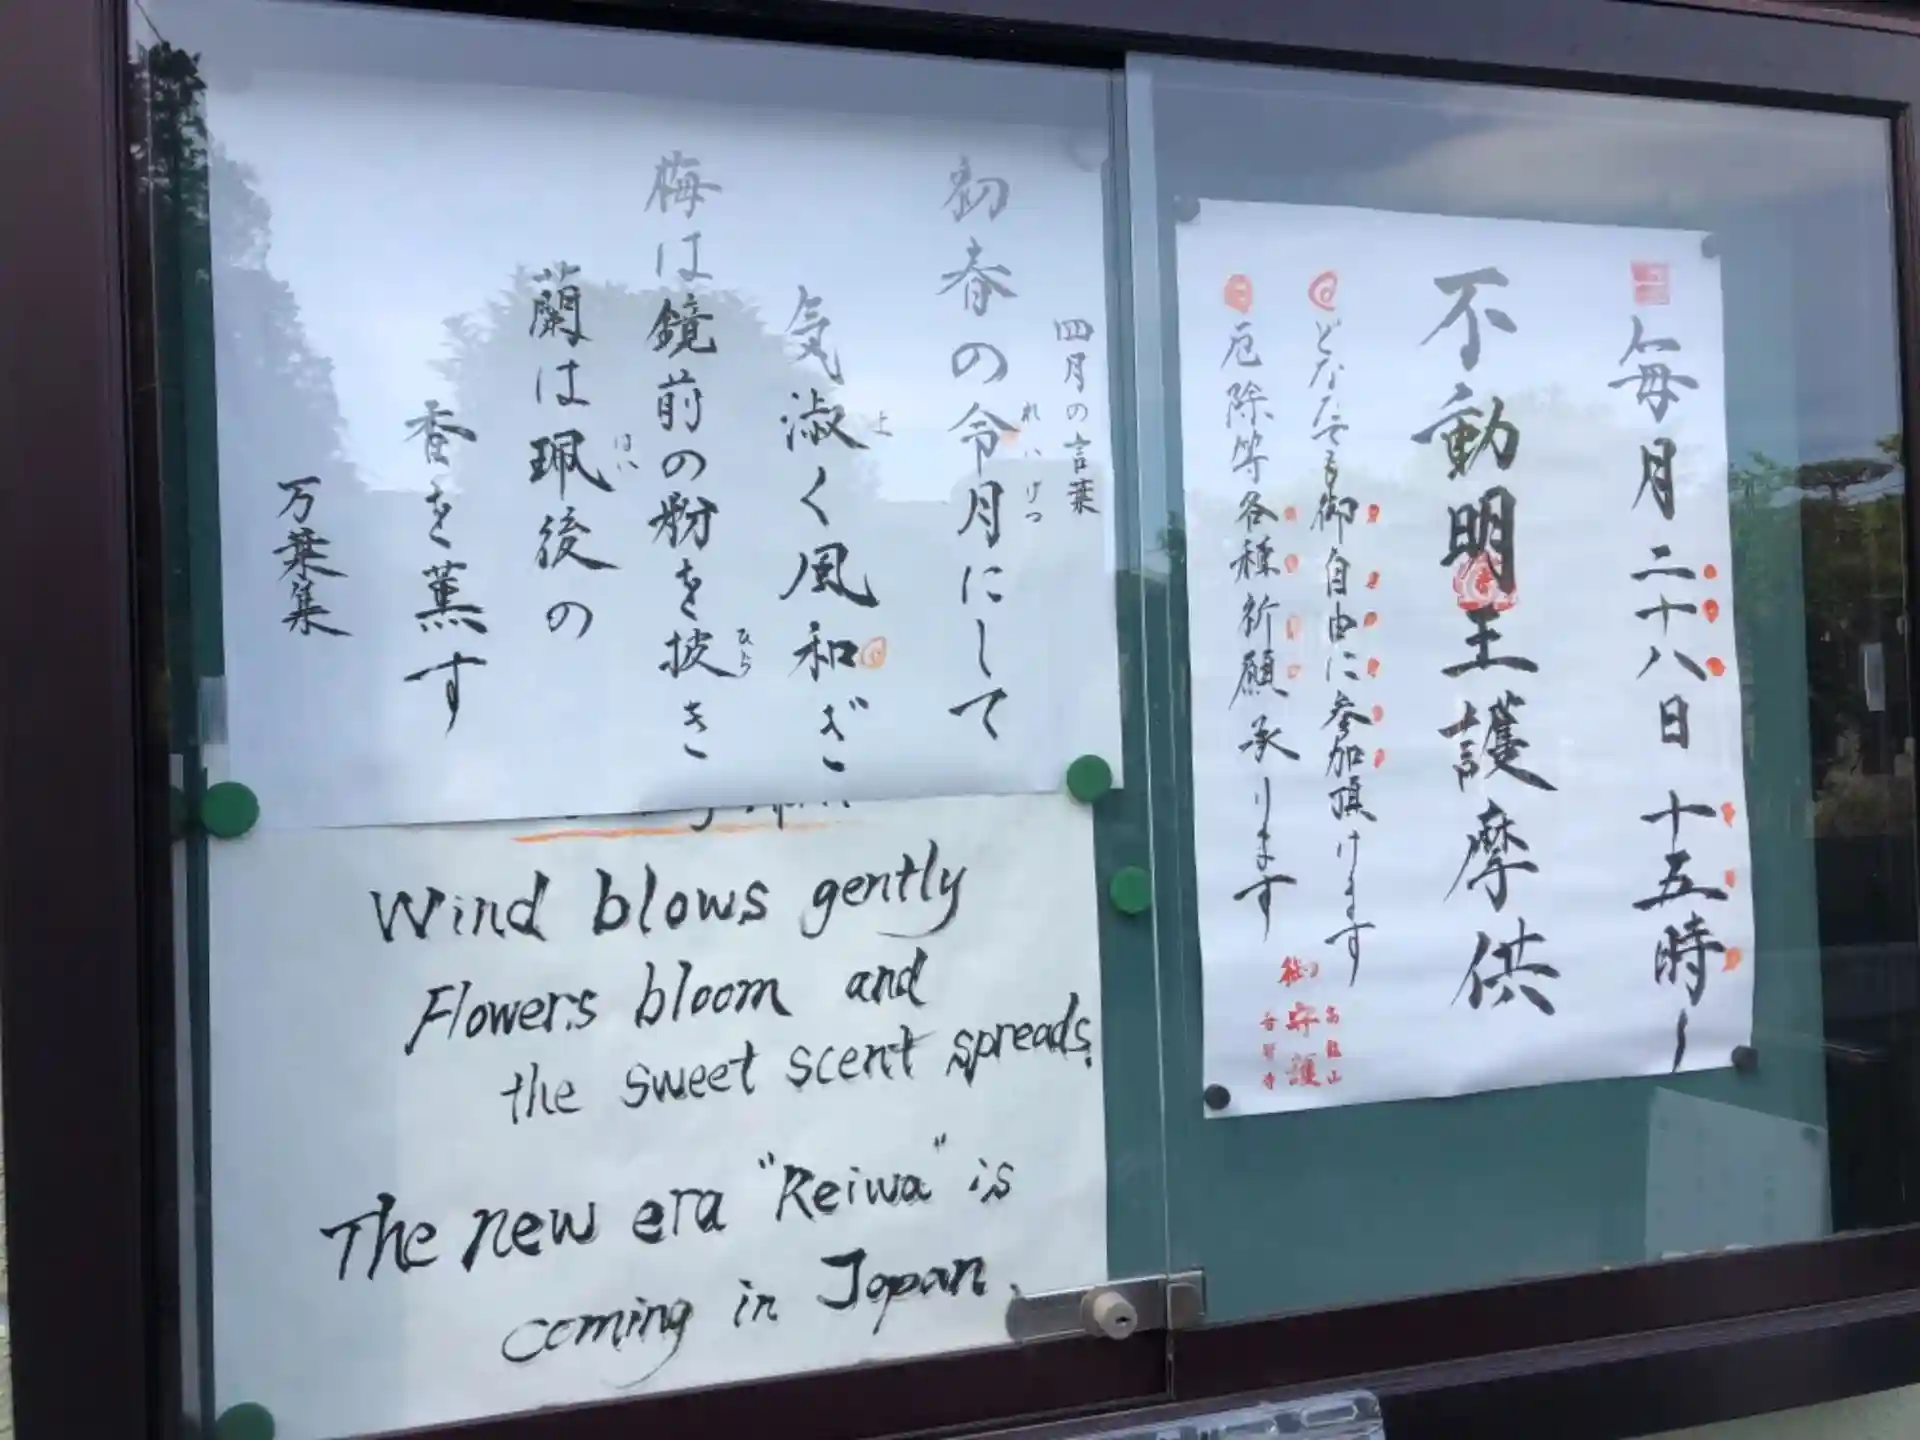 四月の言葉
初春の令月にして
れいげつ
気淑く風和ぎ
よ
梅は鏡前の粉を披き
ひら
蘭は珮後の
はい
香を薫す
万葉集
Wind blows gently
Flowers bloom and
the sweet scent spreads.
The new era "Reiwa" is
coming in Japan.
毎月二十八日十五時〜
不動明王護摩供
どなたでも御自由に参加頂けます
厄除等各種祈願承ります
御守護